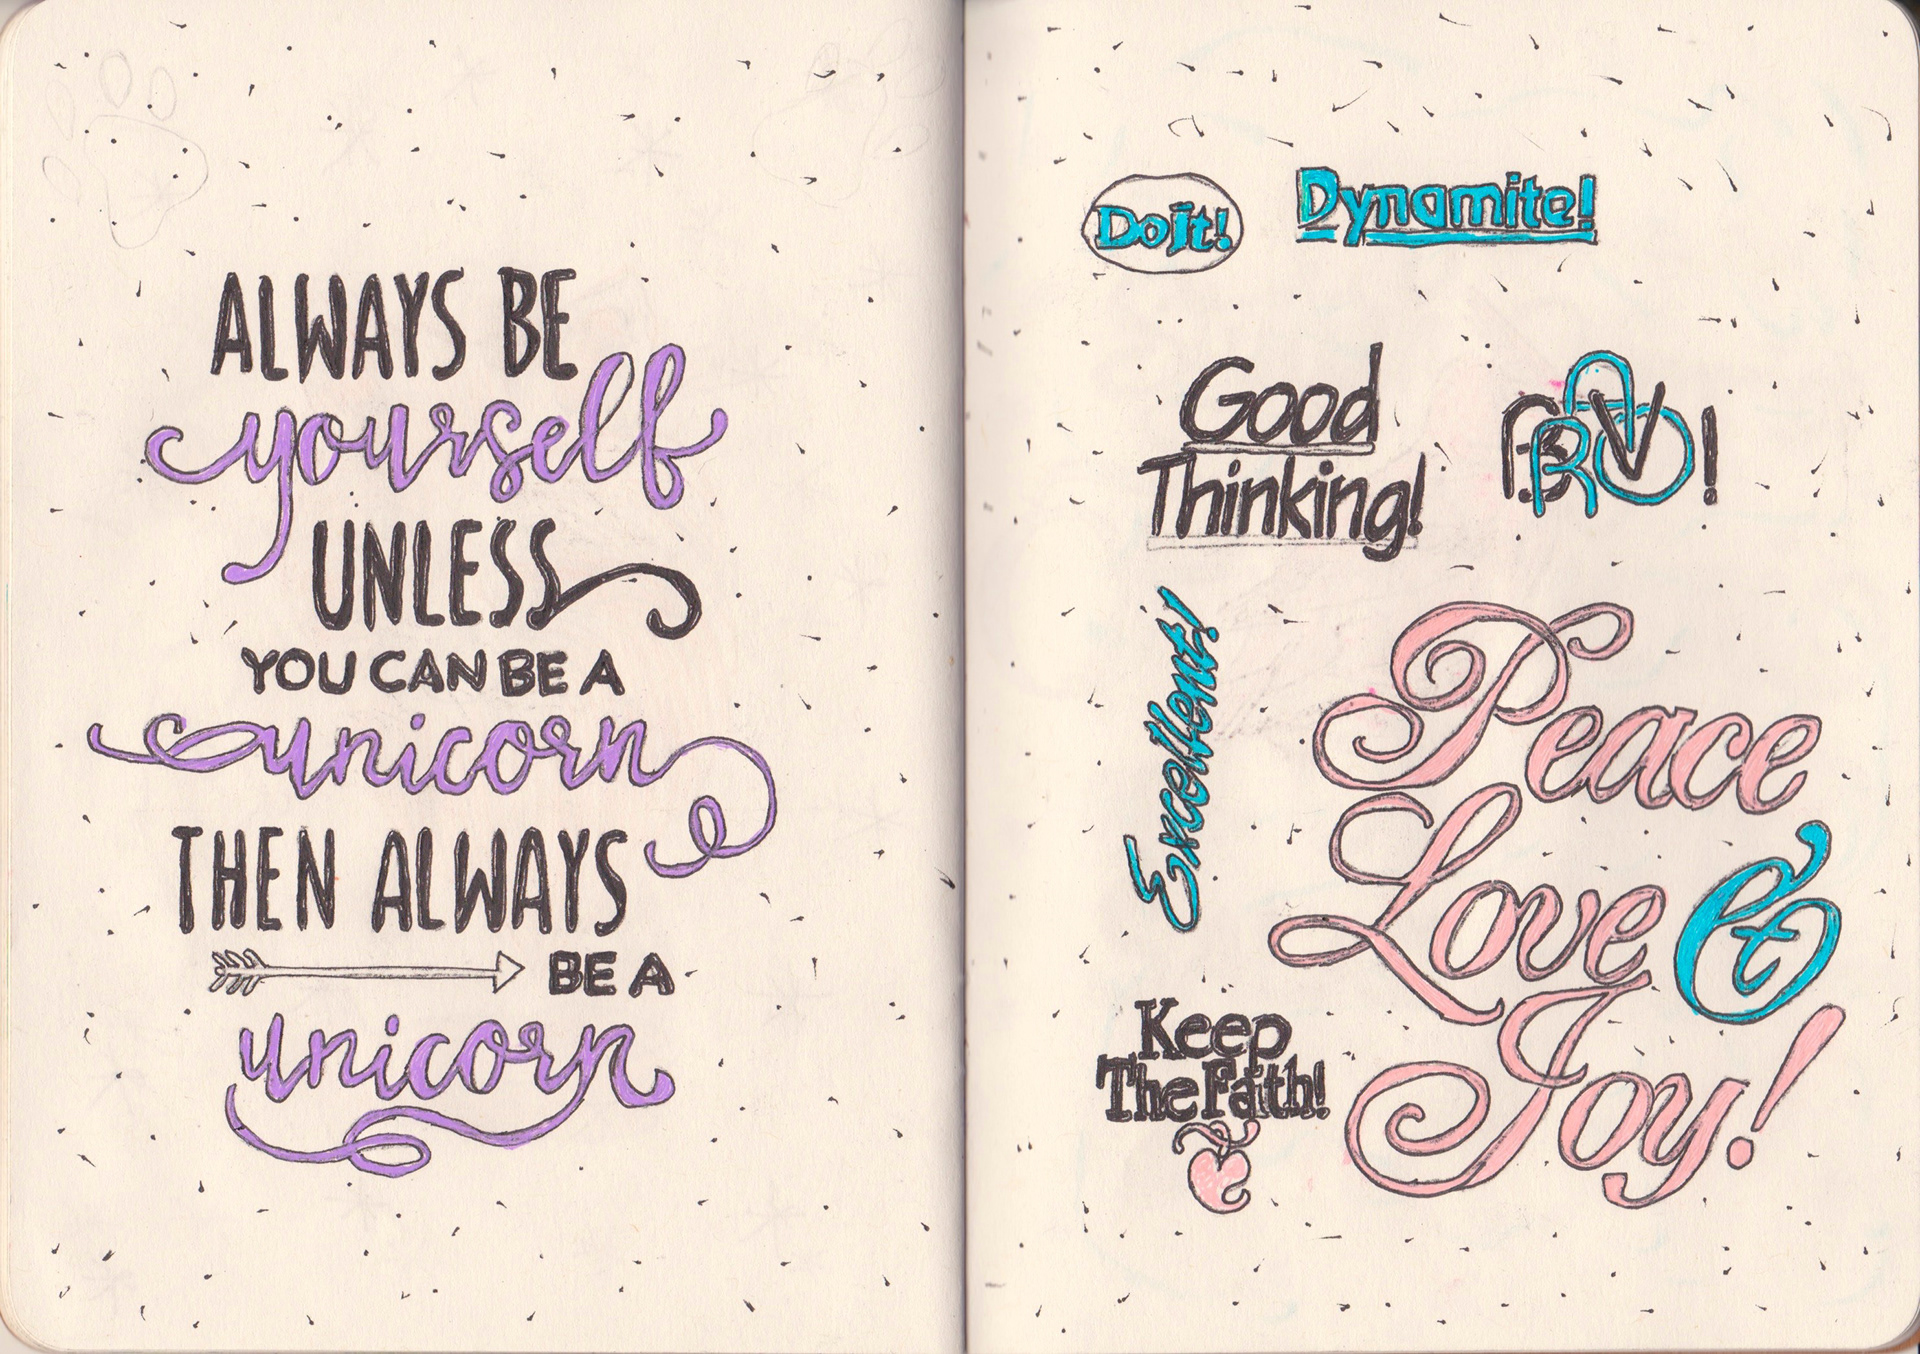 ALWAYS BE
yourself
UNLESS
YOU CAN BE A
unicorn
THEN ALWAYS
BE A
unicorn
Do it!
Dynamite!
Good
Thinking!
BRAVO!
Excellent!
Peace
Love &
Joy!
Keep
The Faith!